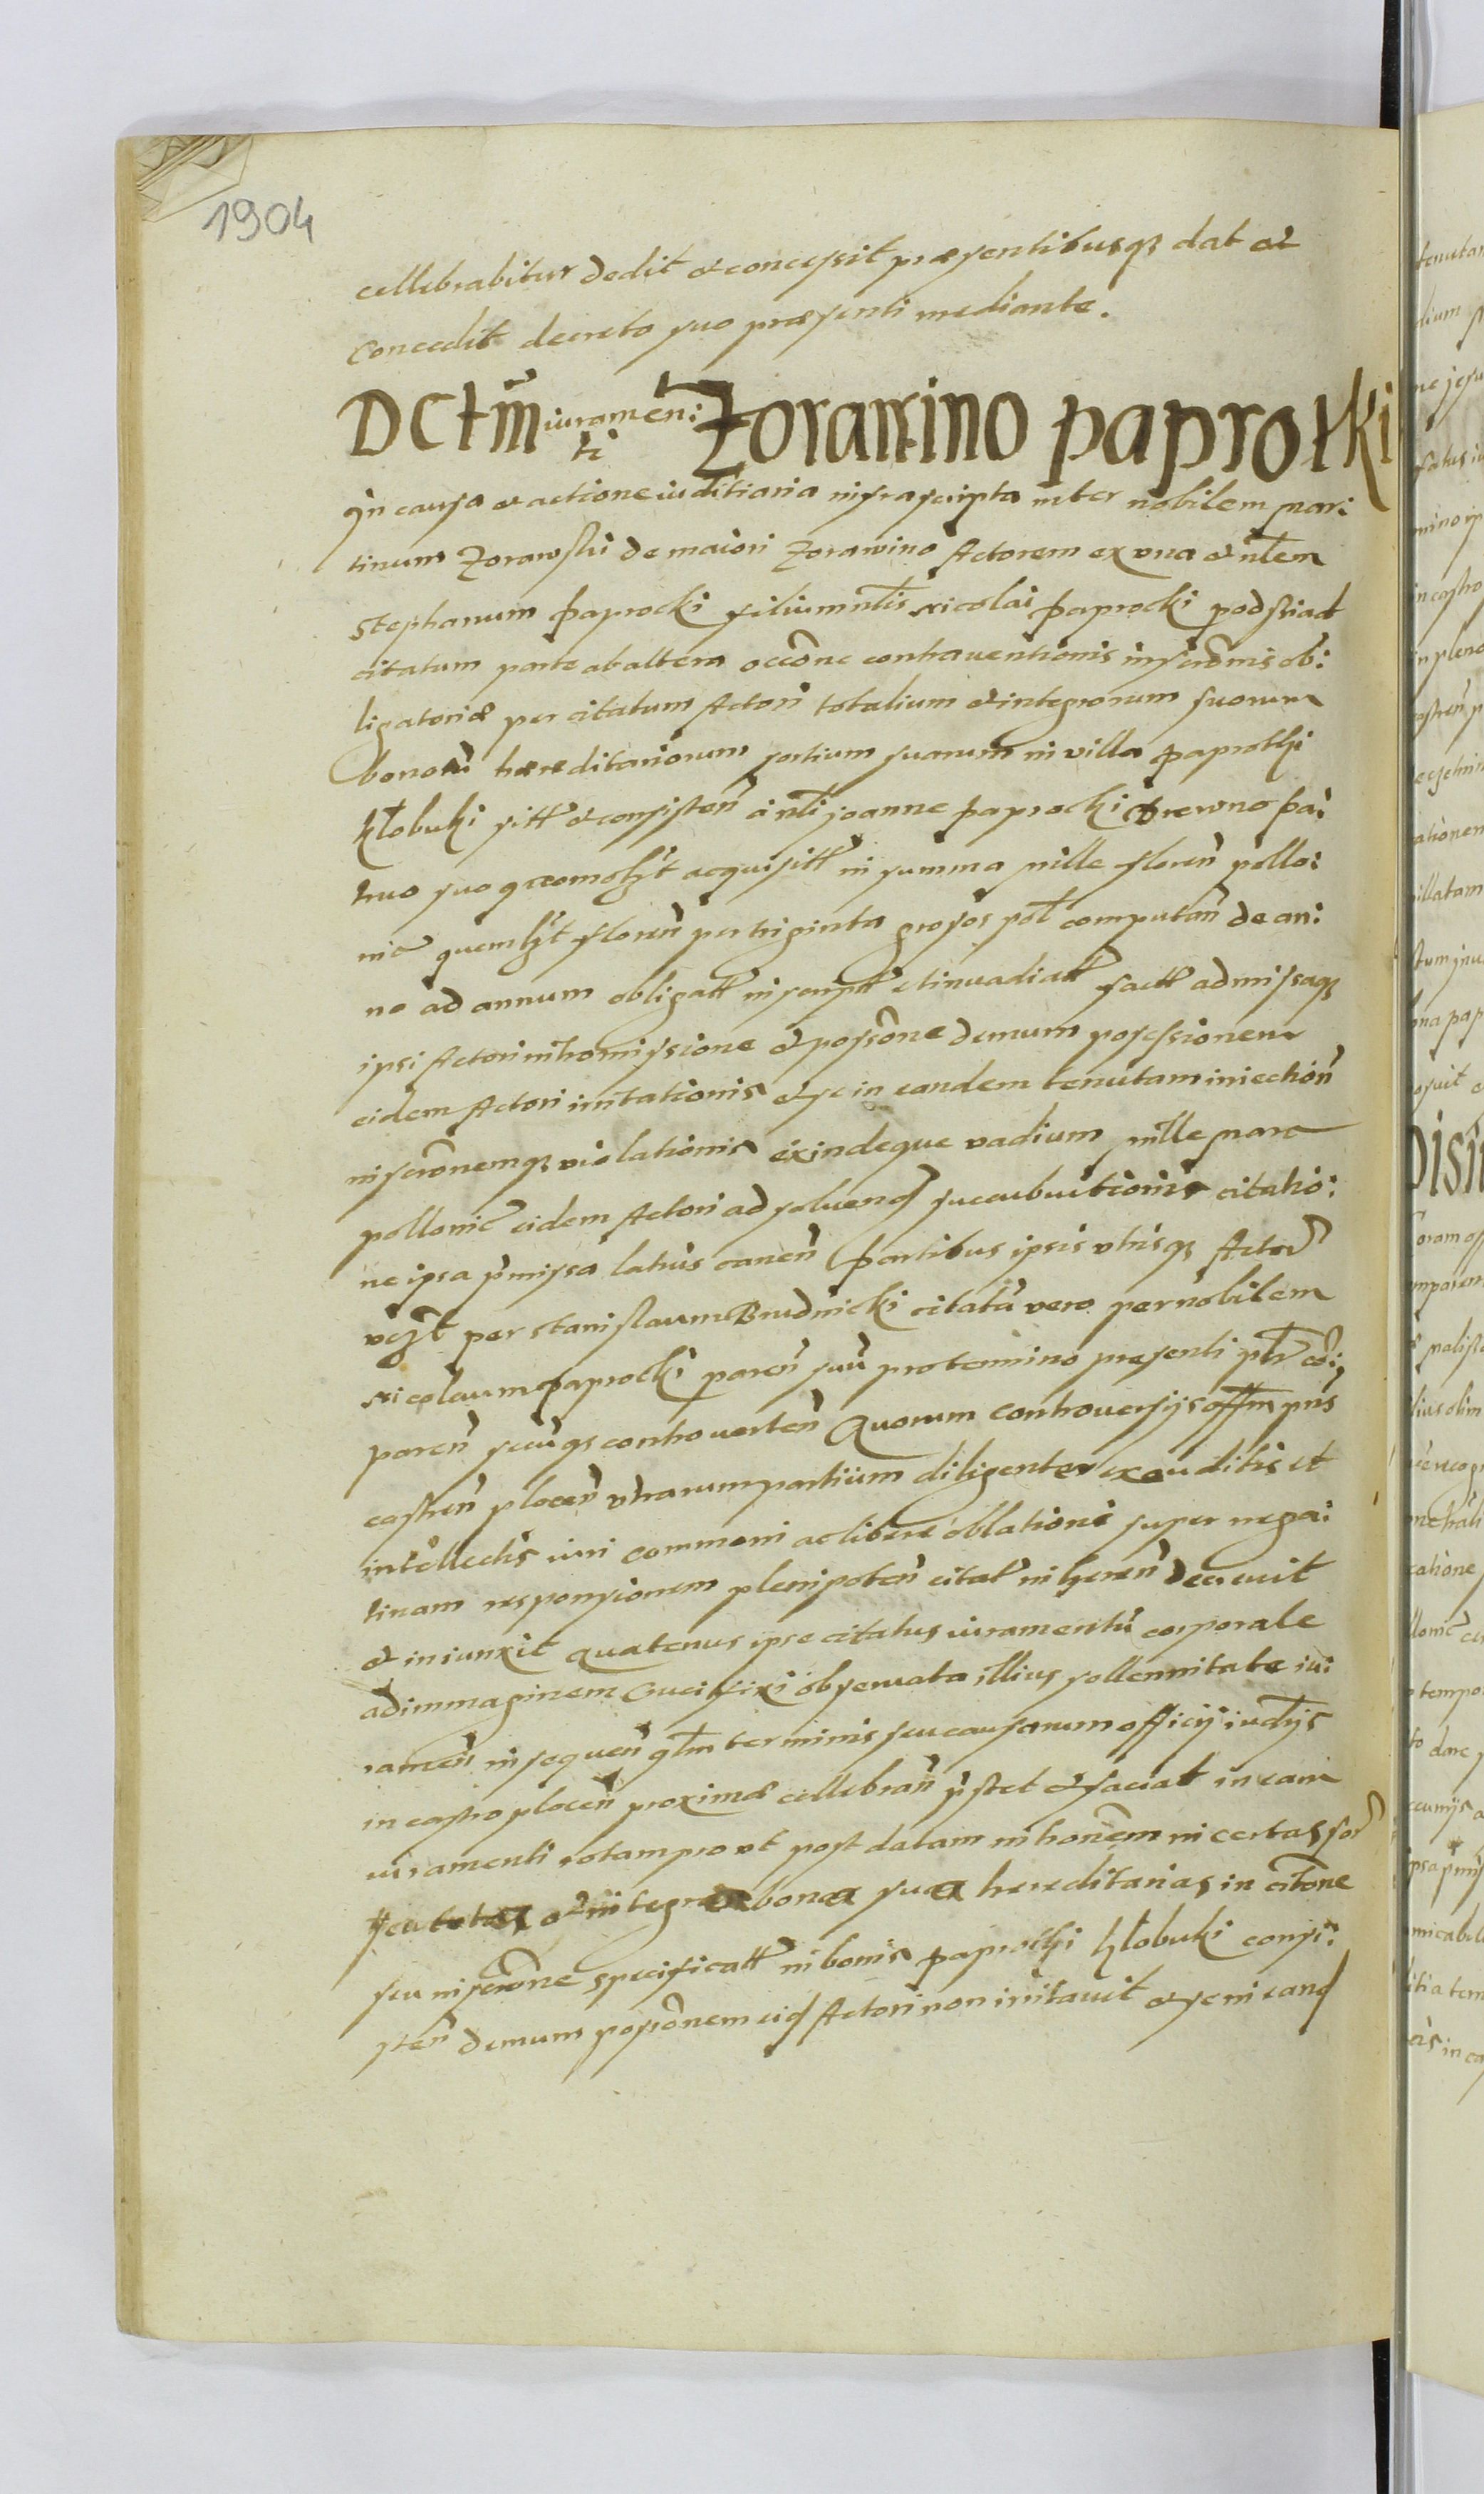 1904
cellebrabitur dedit et concessit praesentibusq3 dat et
Concedit decreto suo praesenti mediante.
Dctm̃ iuramen:
ti
Zorawino paprotki
In causa et actione iuditiaria infrascripta inter nobilem mar:
tinum Zorawski de maiori Zorawino Actorem ex una et nlem
Stephanum paprocki filium nlis Nicolai paprocki podstiad
citatum parte ab altera occõne contraventionis inscrõnis ob:
ligatoriae per citatum Actori totalium et integrorum suorum
bonorũ hæreditariorum sortium suarum in villa paprothi
kłobuki sitt et consisteñ à nli Joanne paprocki drewno pa:
truo suo acquisitt in summa mille floreñ pollo:
nic quemlzt floreñ per triginta grossos pol computañ de an:
no ad annum obligatt inscriptt et invadiatt factt admissaq3
ipsi Actori intromissione et possõne demum possessionem
eidem Actori inntationis et se in eandem tenutam iniectioñ
inscrõnemq3 violationis exindeque vadium mille marc
pollonic eidem Actori ad solvend succubuitionis citatio:
ne ipsa p̃missa latius caneñ Partibus ipsis utrisq3 Actor
vczt per Stanislaum Brudnicki citatũ vero per nobilem
Nicolaum paprocki pareñ suũ pro termino presenti pltr cõ:
pareñ secũq3 controverteñ Quorum controversijs offm pñs
castreñ ploceñ utrarum partium diligenter exauditis et
intellectis iuri commoni ac libere oblationi super nega:
tivam responsionem plenipoteñ citat inhæreñ decrevit
et iniunxit quatenus ipse citatus iuramentũ corporale
ad immaginem Crucifixi observata illius sollennitate iu:
rameñ insequeñ qlm terminis seu causarum officij iudijs
in castro ploceñ proximae cellebrañ p̃stet et faciat in eam
iuramenti rotam prout post datam intronẽm in certas sor
seu totas et integras bona sua hereditarias in citõne
seu inscrõne specificatt in bonis paprothi kłobuki consi:
steñ demum possõnem eid Actori non inntavit et se in eand